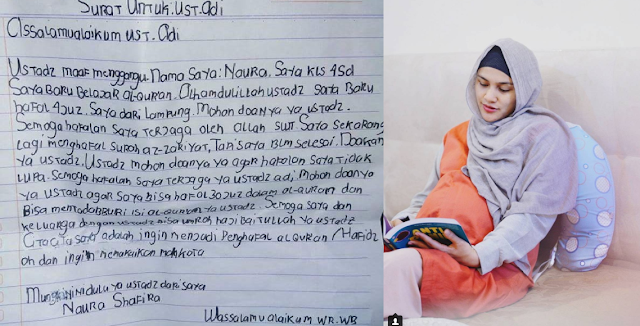 SURAT UNTUK: UST. Adi
Assalamualaikum UST. Adi
Ustadz maaf mengganggu. Nama saya: Naura. Saya kls 4 sd
Saya baru belajar al-quran. Alhamdulillah ustadz saya baru
hafal 4 juz. Saya dari lampung. Mohon doanya ya ustadz.
Semoga hafalan saya terjaga oleh Allah swt. Saya sekarang
lagi menghafal suroh az-zariyat, Tapi saya blm selesai. Doakan
ya ustadz. Ustadz mohon doanya ya agar hafalan saya tidak
lupa. Semoga hafalan saya terjaga ya ustadz adi. Mohon doanya
ya ustadz agar saya bisa hafal 30 juz dalam al-quran dan
Bisa mentadabburi isi al-quran ya ustadz. Semoga saya dan
keluarga dengan ustadz bisa umroh haji baitullah ya ustadz
Cita cita saya adalah ingin menjadi Penghafal al quran / Hafidz
oh dan ingin memakaikan mahkota
ini dulu ya ustadz dari saya
Naura Shafira
Wassalamualaikum WR. WB